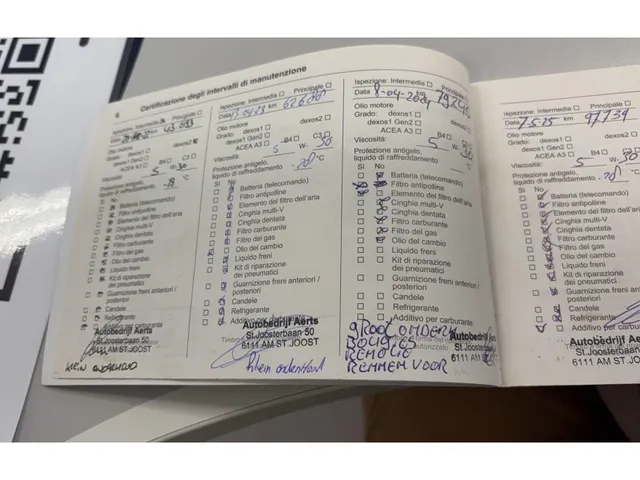 Certificazione degli intervalli di manutenzione
Ispezione: Intermedia Principale
Data km 43.093
Olio motore
Grado: dexos1
dexos2
dexos1 Gen2
ACEA A3 B4 C3
Viscosità: 5 W- 30
Protezione antigelo,
liquido di raffreddamento: °C
Sì No
Batteria (telecomando)
Filtro antipolline
Elemento del filtro dell'aria
Cinghia multi-V
Cinghia dentata
Filtro carburante
Filtro del gas
Olio del cambio
Liquido freni
Kit di riparazione
dei pneumatici
Guarnizione freni anteriori /
posteriori
Candele
Refrigerante
Additivo per carburante
Autobedrijf Aerts
St.Joosterbaan 50
6111 AM ST.JOOST
KLEIN ONDERHOUD
Ispezione: Intermedia Principale
Data km 62600
Olio motore
Grado: dexos1
dexos2
dexos1 Gen2
ACEA A3 B4 C3
Viscosità: 5 W- 30
Protezione antigelo,
liquido di raffreddamento: -20 °C
Sì No
Batteria (telecomando)
Filtro antipolline
Elemento del filtro dell'aria
Cinghia multi-V
Cinghia dentata
Filtro carburante
Filtro del gas
Olio del cambio
Liquido freni
Kit di riparazione
dei pneumatici
Guarnizione freni anteriori /
posteriori
Candele
Refrigerante
Additivo per carburante
Autobedrijf Aerts
St.Joosterbaan 50
6111 AM ST.JOOST
klein onderhoud
Ispezione: Intermedia Principale
Data 8-04-2024 km 79245
Olio motore
Grado: dexos1
dexos1 Gen2
ACEA A3 B4
Viscosità: 5 W- 30
Protezione antigelo,
liquido di raffreddamento: °C
Sì No
Batteria (telecomando)
Filtro antipolline
Elemento del filtro dell'aria
Cinghia multi-V
Cinghia dentata
Filtro carburante
Filtro del gas
Olio del cambio
Liquido freni
Kit di riparazione
dei pneumatici
Guarnizione freni anteriori /
posteriori
Candele
Refrigerante
Additivo per carburante
GROOT ONDERH
BOUGIES
REMOLIE
REMMEN VOOR
Autobedrijf Ae
St.Joosterba
6111 AM ST.
Ispezione: Intermedia Principale
Data 7-5-25 km 97739
Olio motore
Grado: dexos1
dexos1 Gen2
ACEA A3 B4
Viscosità: 5 W- 30
Protezione antigelo,
liquido di raffreddamento: -20 °C
Sì No
Batteria (telecomando)
Filtro antipolline
Elemento del filtro dell'aria
Cinghia multi-V
Cinghia dentata
Filtro carburante
Filtro del gas
Olio del cambio
Liquido freni
Kit di riparazione
dei pneumatici
Guarnizione freni anteriori /
posteriori
Candele
Refrigerante
Additivo per carburante
Autobedrijf Aer
St.Joosterbaan
6111 AM ST.JO